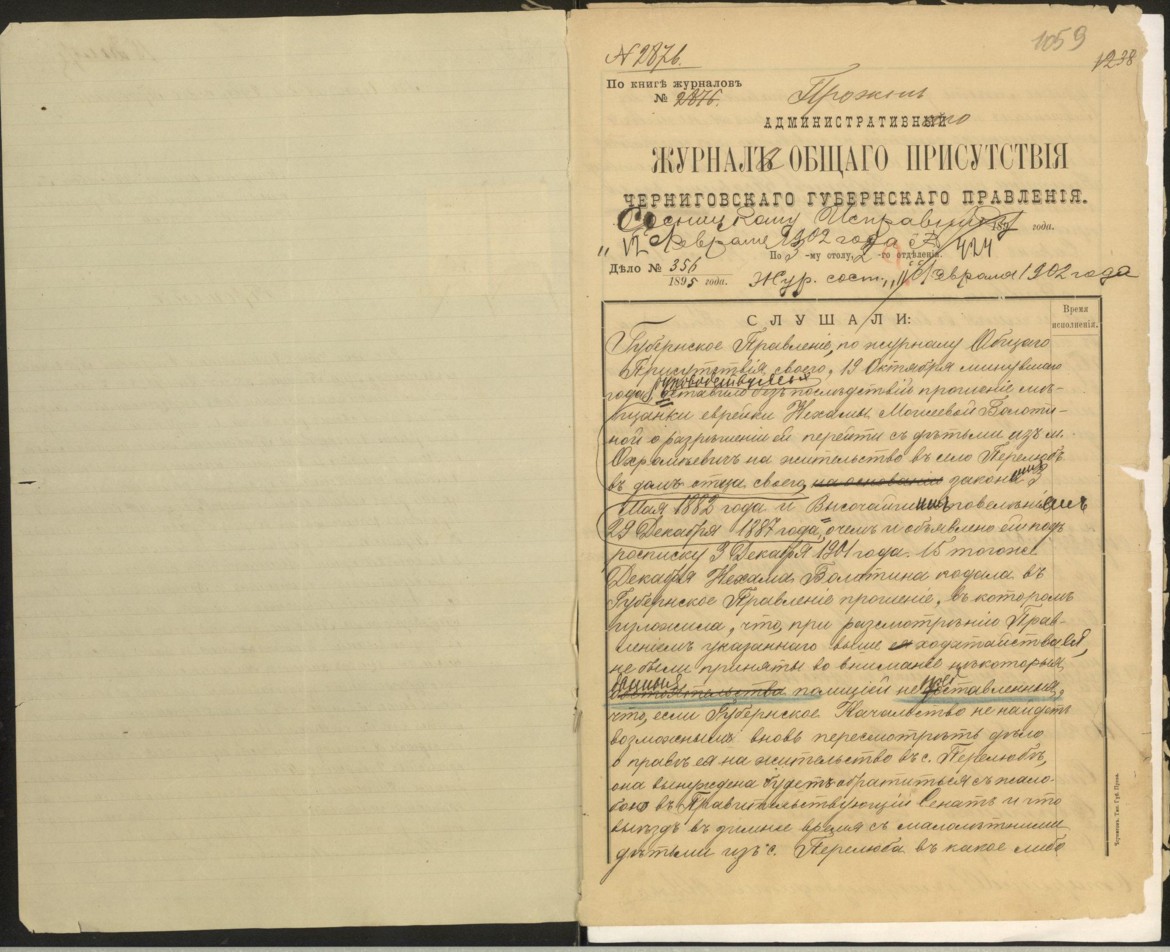 1059
1238
№ 2876.
По книгѣ журналовъ
№ 2876.
АДМИНИСТРАТИВНЫЙ
ЖУРНАЛЪ ОБЩАГО ПРИСУТСТВІЯ
ЧЕРНИГОВСКАГО ГУБЕРНСКАГО ПРАВЛЕНІЯ.
Сосницкому Исправнику 189 года.
„12 Февраля 1902 года № 424
По 3-му столу, 2-го отдѣленія.
Дѣло № 356
1895 года.
Жур. сост. „ Февраля 1902 года
СЛУШАЛИ:
Время
исполненія.
Губернское Правленіе, по журналу Общаго
Присутствія своего, 19 Октября минувшаго
руководствуясь
года, оставило безъ послѣдствій прошеніе мѣ-
щанки еврейки Нехамы Мошеевой Болоти-
ной о разрѣшеніи ей перейти съ дѣтьми изъ м.
Охрамѣевичъ на жительство въ село Перелюбъ
въ домъ отца своего, на основаніи закона 3
Мая 1882 года и Высочайшимъ повелѣніемъ
29 Декабря 1887 года, о чемъ и объявлено ей подъ
росписку 3 Декабря 1901 года. 15 того же
Декабря Нехама Болотина подала въ
Губернское Правленіе прошеніе, въ которомъ
изложила, что, при разсмотрѣніи Прав-
леніемъ указаннаго выше ея ходатайства ея,
не были приняты во вниманіе нѣкоторыя
данныя
обстоятельства полиціей не доставленныя,
что, если Губернское Начальство не найдетъ
возможнымъ вновь пересмотрѣть дѣло
о правѣ ея на жительство въ с. Перелюбѣ,
она вынуждена будетъ обратиться съ жало-
бою въ Правительствующій Сенатъ и что
выѣздъ въ зимнее время съ малолѣтними
дѣтьми изъ с. Перелюба въ какое либо
Черниговъ. Тип. Губ. Прав.